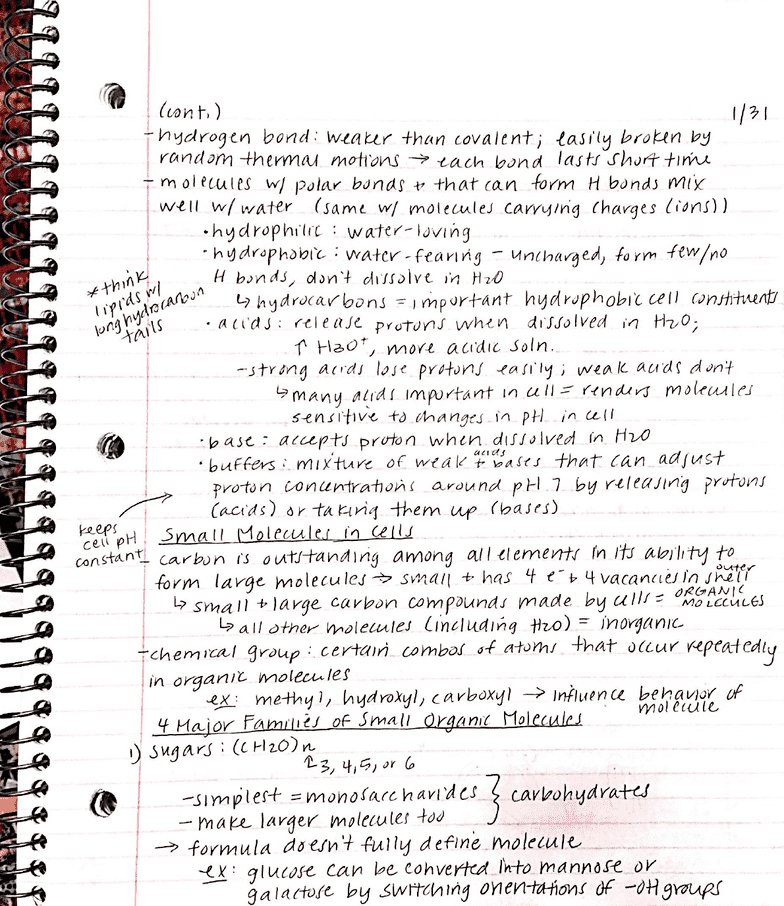 (cont.) 1/31
- hydrogen bond: weaker than covalent; easily broken by
random thermal motions → each bond lasts short time
- molecules w/ polar bonds + that can form H bonds mix
well w/ water (same w/ molecules carrying charges (ions))
• hydrophilic: water-loving
• hydrophobic: water-fearing - uncharged, form few/no
H bonds, don't dissolve in H2O
↳ hydrocarbons = important hydrophobic cell constituents
* think
lipids w/
long hydrocarbon
tails
• acids: release protons when dissolved in H2O;
↑ H3O+, more acidic soln.
- strong acids lose protons easily; weak acids don't
↳ many acids important in cell = renders molecules
sensitive to changes in pH in cell
• base: accepts proton when dissolved in H2O
• buffers: mixture of weak acids + bases that can adjust
proton concentrations around pH 7 by releasing protons
(acids) or taking them up (bases)
keeps
cell pH
constant
Small Molecules in Cells
- carbon is outstanding among all elements in its ability to
form large molecules → small + has 4 e- + 4 vacancies in outer shell
↳ small + large carbon compounds made by cells = ORGANIC MOLECULES
↳ all other molecules (including H2O) = inorganic
- chemical group: certain combos of atoms that occur repeatedly
in organic molecules
ex: methyl, hydroxyl, carboxyl → influence behavior of
molecule
4 Major Families of Small Organic Molecules
1) sugars: (CH2O)n
↑ 3, 4, 5, or 6
- simplest = monosaccharides } carbohydrates
- make larger molecules too
→ formula doesn't fully define molecule
ex: glucose can be converted into mannose or
galactose by switching orientations of -OH groups